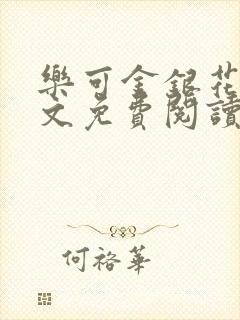 樂可金銀花
文免費閱讀
何裕華